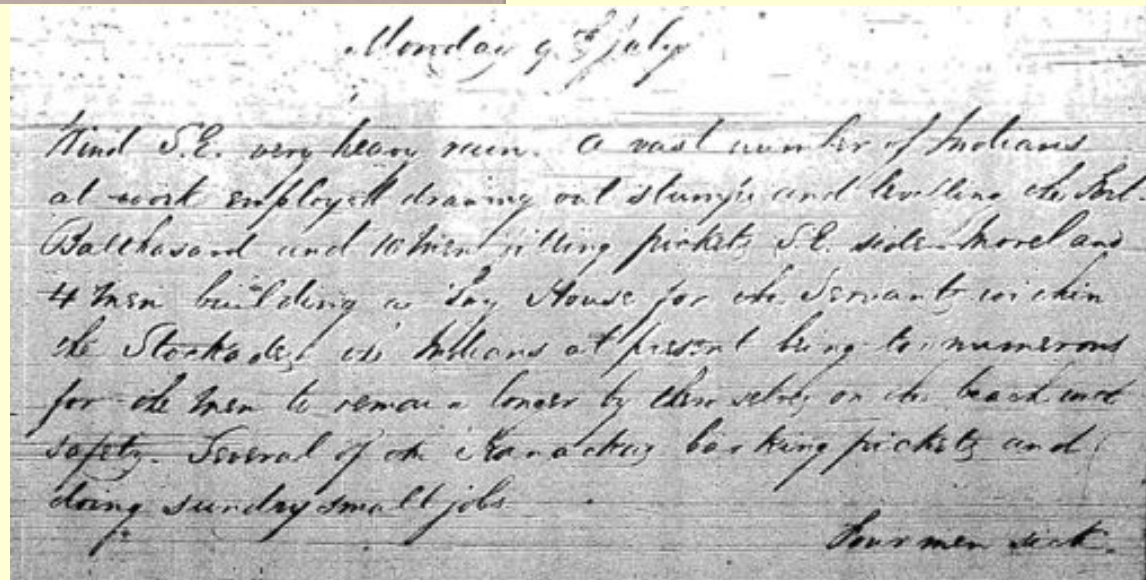 Monday 9th July
Wind S.E. very heavy rain. A vast number of Indians
at work employed drawing out stumps and levelling the Fort
Balthasard and 10 Men sitting pickets S.E. side Morel and
4 Men building a Log House for the Servants within
the Stockades the Indians at present being to numerous
for the Men to remain longer by themselves on the beach
safety. Several of the Kanackas barking pickets and
doing sundry small jobs
Four men sick.